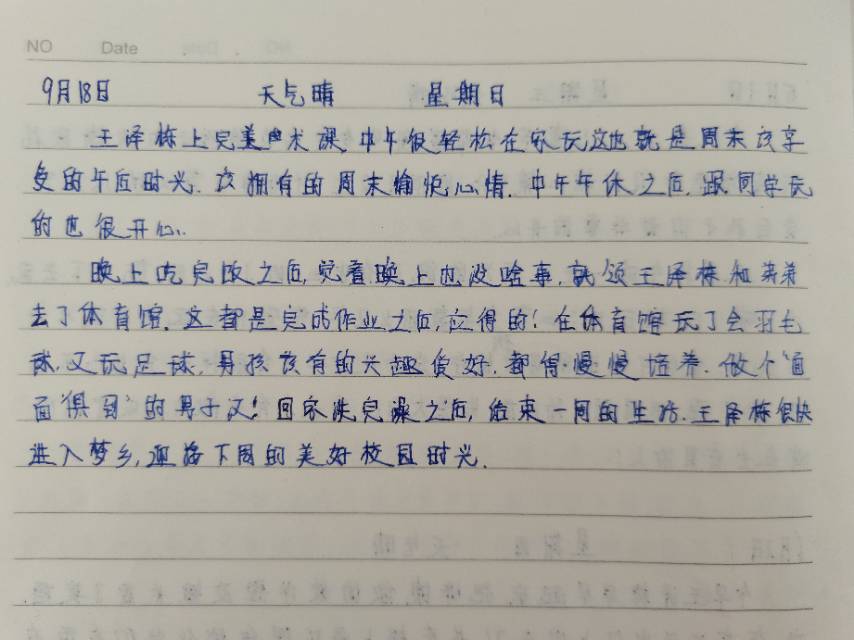 NO Date
9月18日 天气晴 星期日
王泽栋上完美术课,中午很轻松在家玩这也就是周末该享
受的午后时光.该拥有的周末愉快心情.中午午休之后.跟同学玩
的也很开心.
晚上吃完饭之后,觉着晚上也没啥事,就领王泽栋和弟弟
去了体育馆.这都是完成作业之后,应得的!在体育馆玩了会羽毛
球.又玩足球.男孩该有的兴趣爱好.都得慢慢培养.做个"面
面俱到"的男子汉!回家洗完澡之后,结束一周的生活.王泽栋很快
进入梦乡,迎接下周的美好校园时光.